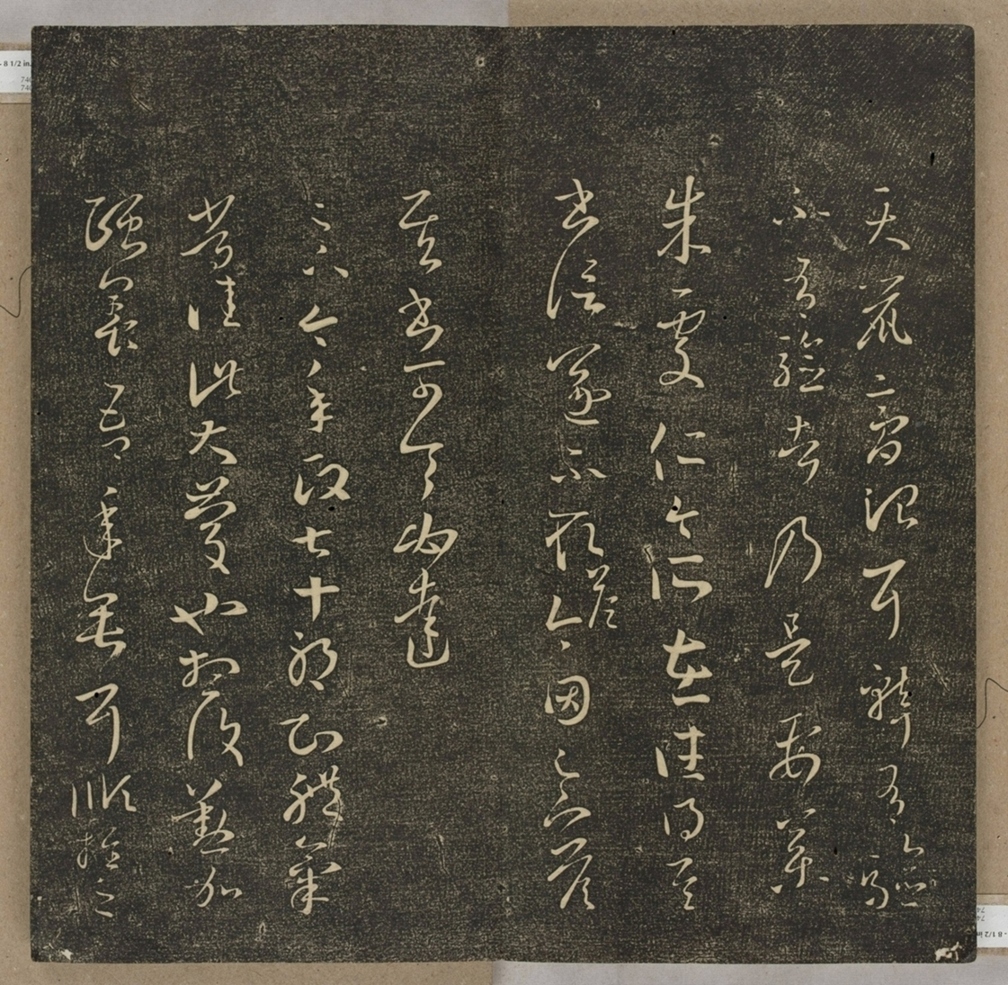 天鼠膏治耳聾有驗
不有驗者乃是要藥
朱處仁今所在往得其
書信遂不取答今因足下答
其書可令必達
足下今年政七十耶知體氣
常佳此大慶也想復勤加
頤養吾年垂耳順推之
8 1/2 in.